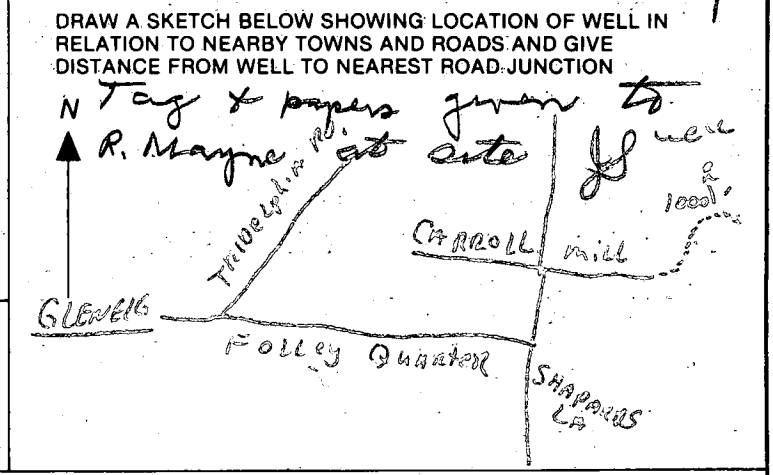 DRAW A SKETCH BELOW SHOWING LOCATION OF WELL IN
RELATION TO NEARBY TOWNS AND ROADS AND GIVE
DISTANCE FROM WELL TO NEAREST ROAD JUNCTION
N Tag & papers given to
R. Mayne at site JS
well
1000'
TRIDelphia RD.
CARROLL mill
GLENELG
FOLLey QuARTER
SHAPARDS
LA